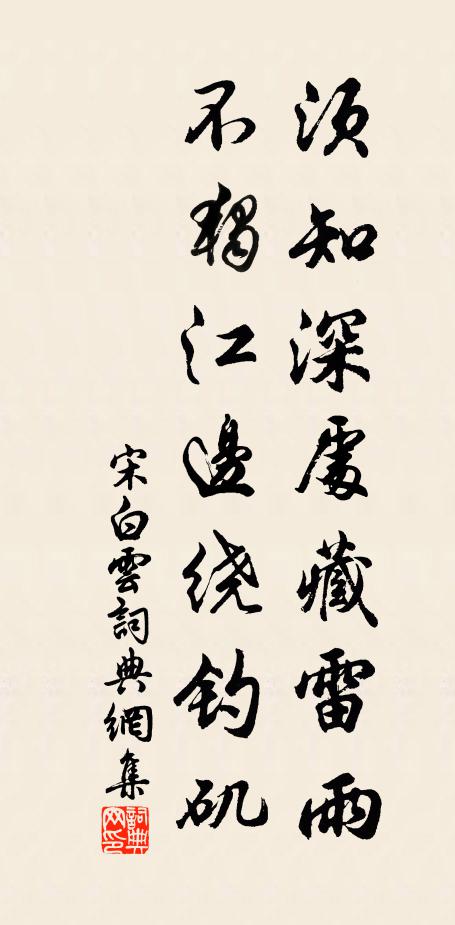 須知深處藏雷雨
不獨江邊绕釣矶
宋白雲詞典網集
詞典网印